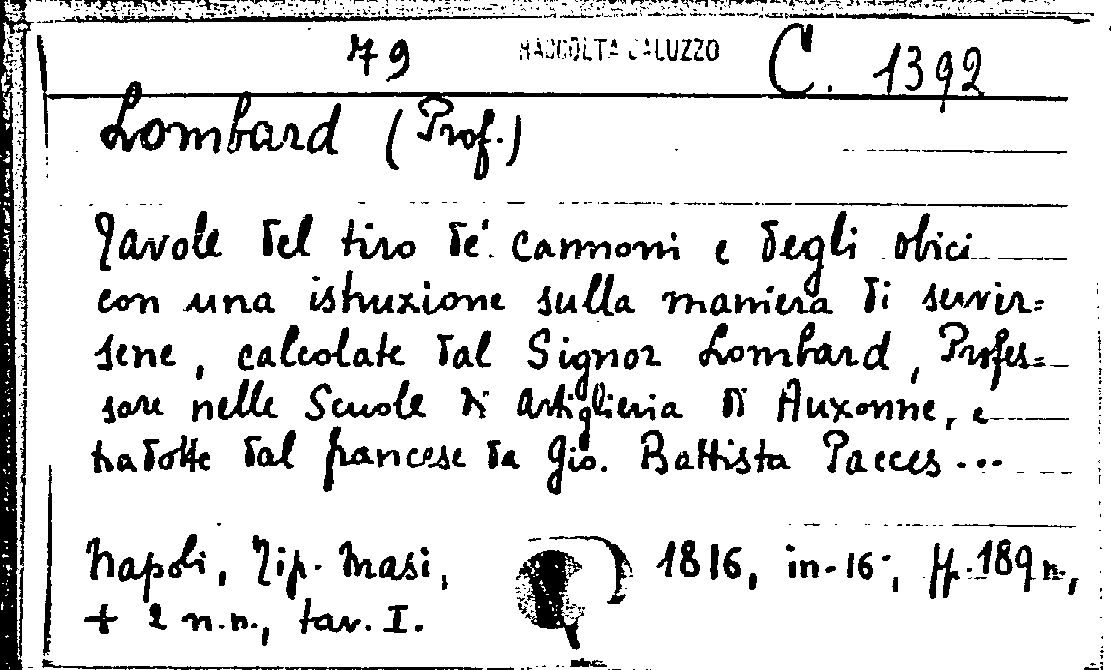 79 RACCOLTA CALUZZO C. 1392
Lombard (Prof.)
Tavole del tiro de' cannoni e degli obici
con una istruzione sulla maniera di servir=
sene, calcolate dal Signor Lombard, Profes=
sore nelle Scuole di Artiglieria di Auxonne, e
tradotte dal francese da Gio. Battista Pacces...
Napoli, Tip. Masi, 1816, in-16°, pp. 189 n.,
+ 2 n.n., tav. I.